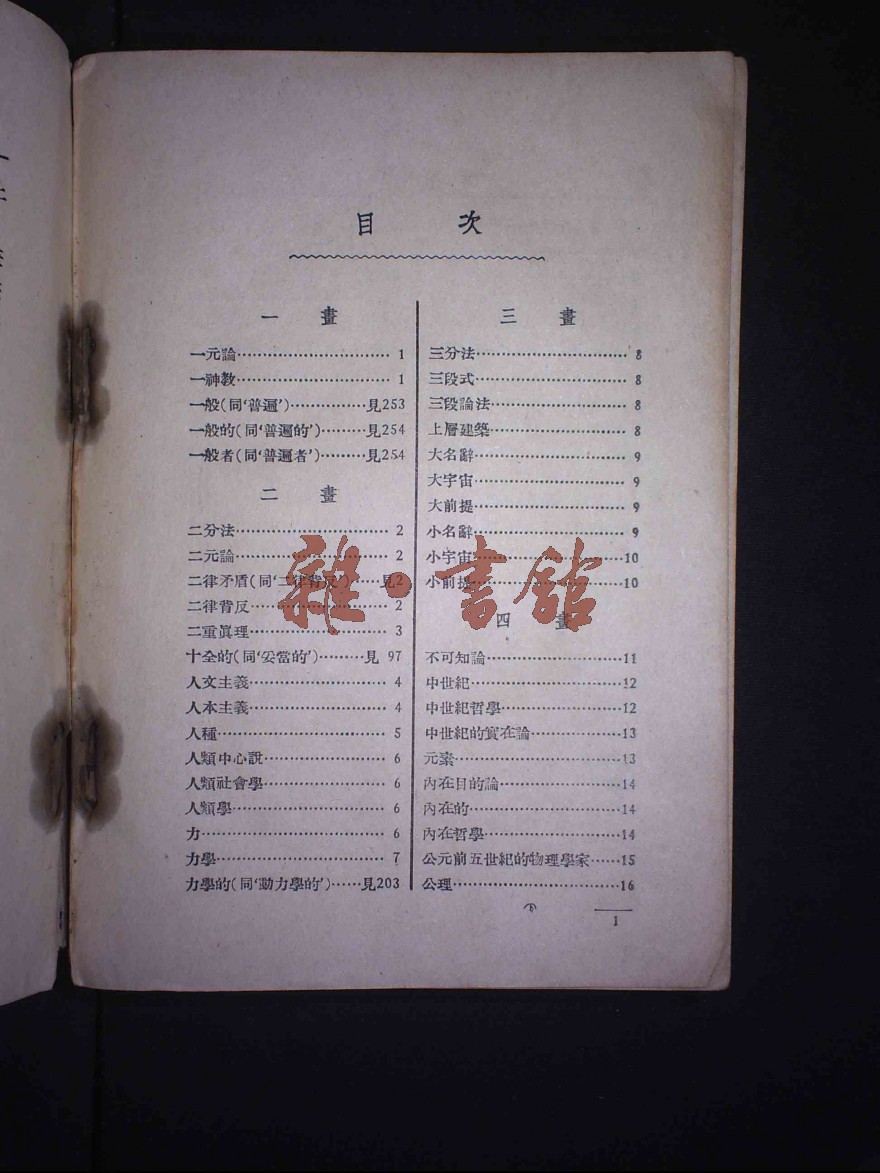 目　次
一　畫
一元論…………………………1
一神教…………………………1
一般(同‘普遍’)……………見253
一般的(同‘普遍的’)………見254
一般者(同‘普遍者’)………見254
二　畫
二分法…………………………2
二元論…………………………2
二律矛盾(同‘二律背反’)……見2
二律背反………………………2
二重眞理………………………3
十全的(同‘妥當的’)………見 97
人文主義………………………4
人本主義………………………4
人種……………………………5
人類中心說……………………6
人類社會學……………………6
人類學…………………………6
力………………………………6
力學……………………………7
力學的(同‘動力學的’)……見203
三　畫
三分法…………………………8
三段式…………………………8
三段論法………………………8
上層建築………………………8
大名辭…………………………9
大宇宙…………………………9
大前提…………………………9
小名辭…………………………9
小宇宙…………………………10
小前提…………………………10
四　畫
不可知論………………………11
中世紀…………………………12
中世紀哲學……………………12
中世紀的實在論………………13
元素……………………………13
內在目的論……………………14
內在的…………………………14
內在哲學………………………14
公元前五世紀的物理學家……15
公理……………………………16
1
雜·書館